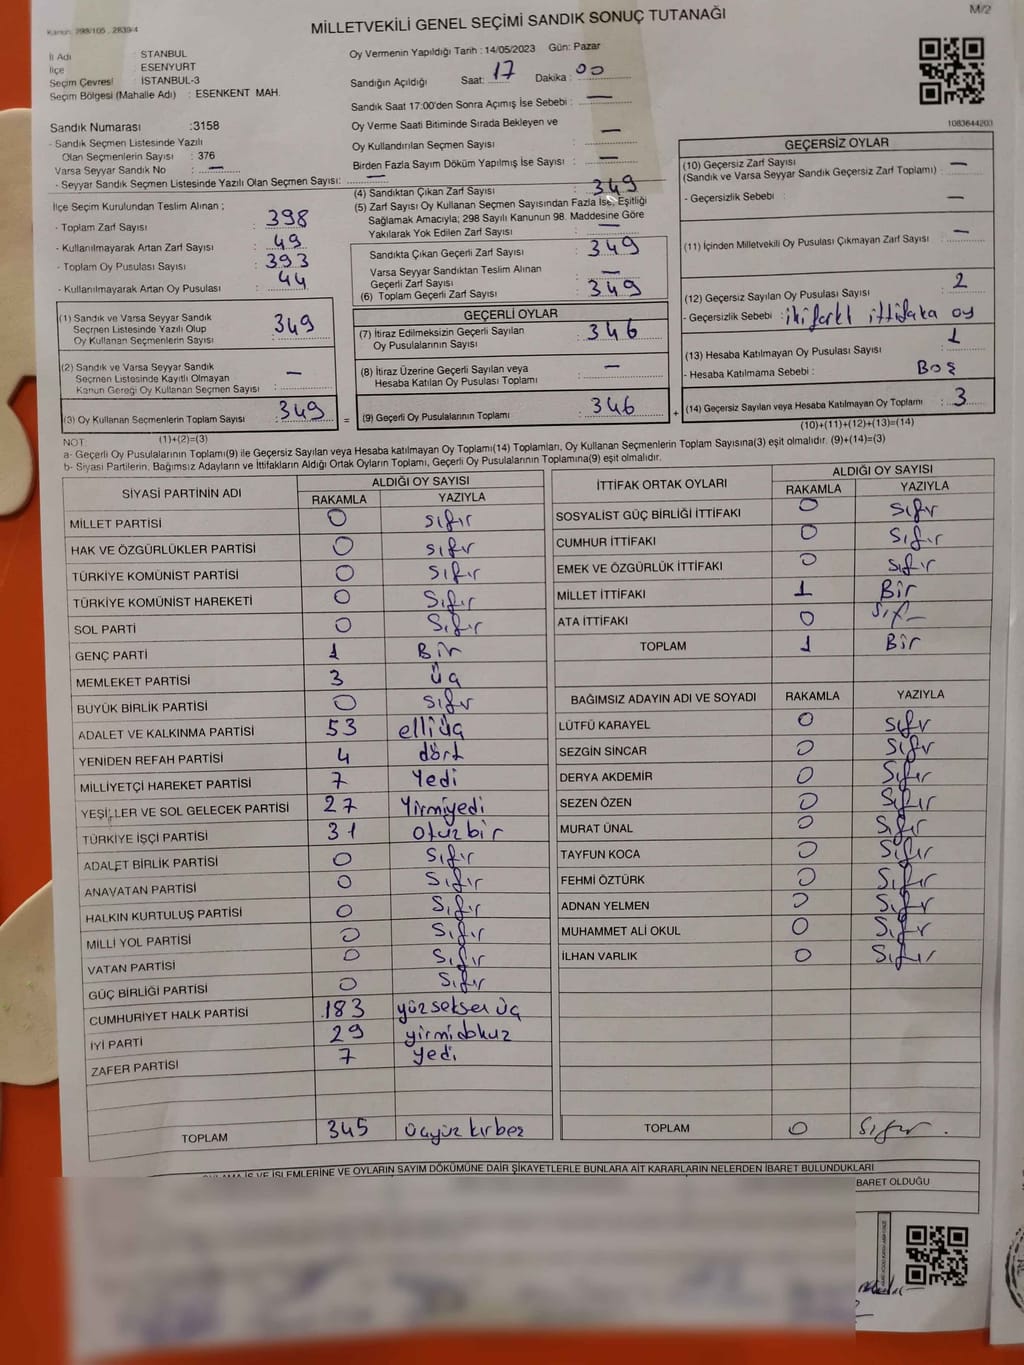 Kanun: 298/105 , 2839/4
MİLLETVEKİLİ GENEL SEÇİMİ SANDIK SONUÇ TUTANAĞI
M/2
İl Adı : STANBUL
İlçe : ESENYURT
Seçim Çevresi : İSTANBUL-3
Seçim Bölgesi (Mahalle Adı) : ESENKENT MAH.
Sandık Numarası :3158
- Sandık Seçmen Listesinde Yazılı
Olan Seçmenlerin Sayısı : 376
Varsa Seyyar Sandık No : —
- Seyyar Sandık Seçmen Listesinde Yazılı Olan Seçmen Sayısı: —
İlçe Seçim Kurulundan Teslim Alınan :
- Toplam Zarf Sayısı : 398
- Kullanılmayarak Artan Zarf Sayısı : 49
- Toplam Oy Pusulası Sayısı : 393
- Kullanılmayarak Artan Oy Pusulası : 44
(1) Sandık ve Varsa Seyyar Sandık
Seçmen Listesinde Yazılı Olup
Oy Kullanan Seçmenlerin Sayısı : 349
(2) Sandık ve Varsa Seyyar Sandık
Seçmen Listesinde Kayıtlı Olmayan
Kanun Gereği Oy Kullanan Seçmen Sayısı : —
(3) Oy Kullanan Seçmenlerin Toplam Sayısı : 349
(1)+(2)=(3)
Oy Vermenin Yapıldığı Tarih : 14/05/2023 Gün: Pazar
Sandığın Açıldığı Saat: 17 Dakika : 00
Sandık Saat 17:00'den Sonra Açımış İse Sebebi : —
Oy Verme Saati Bitiminde Sırada Bekleyen ve
Oy Kullandırılan Seçmen Sayısı : —
Birden Fazla Sayım Döküm Yapılmış İse Sayısı : —
(4) Sandıktan Çıkan Zarf Sayısı : 349
(5) Zarf Sayısı Oy Kullanan Seçmen Sayısından Fazla İse, Eşitliği
Sağlamak Amacıyla; 298 Sayılı Kanunun 98. Maddesine Göre
Yakılarak Yok Edilen Zarf Sayısı : —
Sandıkta Çıkan Geçerli Zarf Sayısı : 349
Varsa Seyyar Sandıktan Teslim Alınan
Geçerli Zarf Sayısı : —
(6) Toplam Geçerli Zarf Sayısı : 349
GEÇERLİ OYLAR
(7) İtiraz Edilmeksizin Geçerli Sayılan
Oy Pusulalarının Sayısı : 346
(8) İtiraz Üzerine Geçerli Sayılan veya
Hesaba Katılan Oy Pusulası Toplamı : —
= (9) Geçerli Oy Pusulalarının Toplamı : 346
1083644203
GEÇERSİZ OYLAR
(10) Geçersiz Zarf Sayısı : —
(Sandık ve Varsa Seyyar Sandık Geçersiz Zarf Toplamı)
- Geçersizlik Sebebi : —
(11) İçinden Milletvekili Oy Pusulası Çıkmayan Zarf Sayısı : —
(12) Geçersiz Sayılan Oy Pusulası Sayısı : 2
- Geçersizlik Sebebi : iki farklı ittifaka oy
(13) Hesaba Katılmayan Oy Pusulası Sayısı : 1
- Hesaba Katılmama Sebebi : Boş
+ (14) Geçersiz Sayılan veya Hesaba Katılmayan Oy Toplamı : 3
(10)+(11)+(12)+(13)=(14)
NOT:
a- Geçerli Oy Pusulalarının Toplamı(9) ile Geçersiz Sayılan veya Hesaba katılmayan Oy Toplamı(14) Toplamları, Oy Kullanan Seçmenlerin Toplam Sayısına(3) eşit olmalıdır. (9)+(14)=(3)
b- Siyasi Partilerin, Bağımsız Adayların ve İttifakların Aldığı Ortak Oyların Toplamı, Geçerli Oy Pusulalarının Toplamına(9) eşit olmalıdır.
SİYASİ PARTİNİN ADI ALDIĞI OY SAYISI
RAKAMLA YAZIYLA
MİLLET PARTİSİ 0 sıfır
HAK VE ÖZGÜRLÜKLER PARTİSİ 0 sıfır
TÜRKİYE KOMÜNİST PARTİSİ 0 sıfır
TÜRKİYE KOMÜNİST HAREKETİ 0 Sıfır
SOL PARTİ 0 Sıfır
GENÇ PARTİ 1 Bir
MEMLEKET PARTİSİ 3 üç
BÜYÜK BİRLİK PARTİSİ 0 sıfır
ADALET VE KALKINMA PARTİSİ 53 elliüç
YENİDEN REFAH PARTİSİ 4 dört
MİLLİYETÇİ HAREKET PARTİSİ 7 Yedi
YEŞİLLER VE SOL GELECEK PARTİSİ 27 Yirmiyedi
TÜRKİYE İŞÇİ PARTİSİ 31 otuzbir
ADALET BİRLİK PARTİSİ 0 Sıfır
ANAVATAN PARTİSİ 0 Sıfır
HALKIN KURTULUŞ PARTİSİ 0 Sıfır
MİLLİ YOL PARTİSİ 0 Sıfır
VATAN PARTİSİ 0 Sıfır
GÜÇ BİRLİĞİ PARTİSİ 0 Sıfır
CUMHURİYET HALK PARTİSİ 183 yüzseksenüç
İYİ PARTİ 29 yirmidokuz
ZAFER PARTİSİ 7 yedi
TOPLAM 345 üçyüzkırbeş
İTTİFAK ORTAK OYLARI ALDIĞI OY SAYISI
RAKAMLA YAZIYLA
SOSYALİST GÜÇ BİRLİĞİ İTTİFAKI 0 Sıfır
CUMHUR İTTİFAKI 0 Sıfır
EMEK VE ÖZGÜRLÜK İTTİFAKI 0 sıfır
MİLLET İTTİFAKI 1 Bir
ATA İTTİFAKI 0 Sıfır
TOPLAM 1 Bir
BAĞIMSIZ ADAYIN ADI VE SOYADI RAKAMLA YAZIYLA
LÜTFÜ KARAYEL 0 sıfır
SEZGİN SİNCAR 0 Sıfır
DERYA AKDEMİR 0 Sıfır
SEZEN ÖZEN 0 Sıfır
MURAT ÜNAL 0 Sıfır
TAYFUN KOCA 0 Sıfır
FEHMİ ÖZTÜRK 0 Sıfır
ADNAN YELMEN 0 Sıfır
MUHAMMET ALİ OKUL 0 Sıfır
İLHAN VARLIK 0 Sıfır
TOPLAM 0 Sıfır
İŞ VE İŞLEMLERİNE VE OYLARIN SAYIM DÖKÜMÜNE DAİR ŞİKAYETLERLE BUNLARA AİT KARARLARIN NELERDEN İBARET BULUNDUKLARI
BARET OLDUĞU